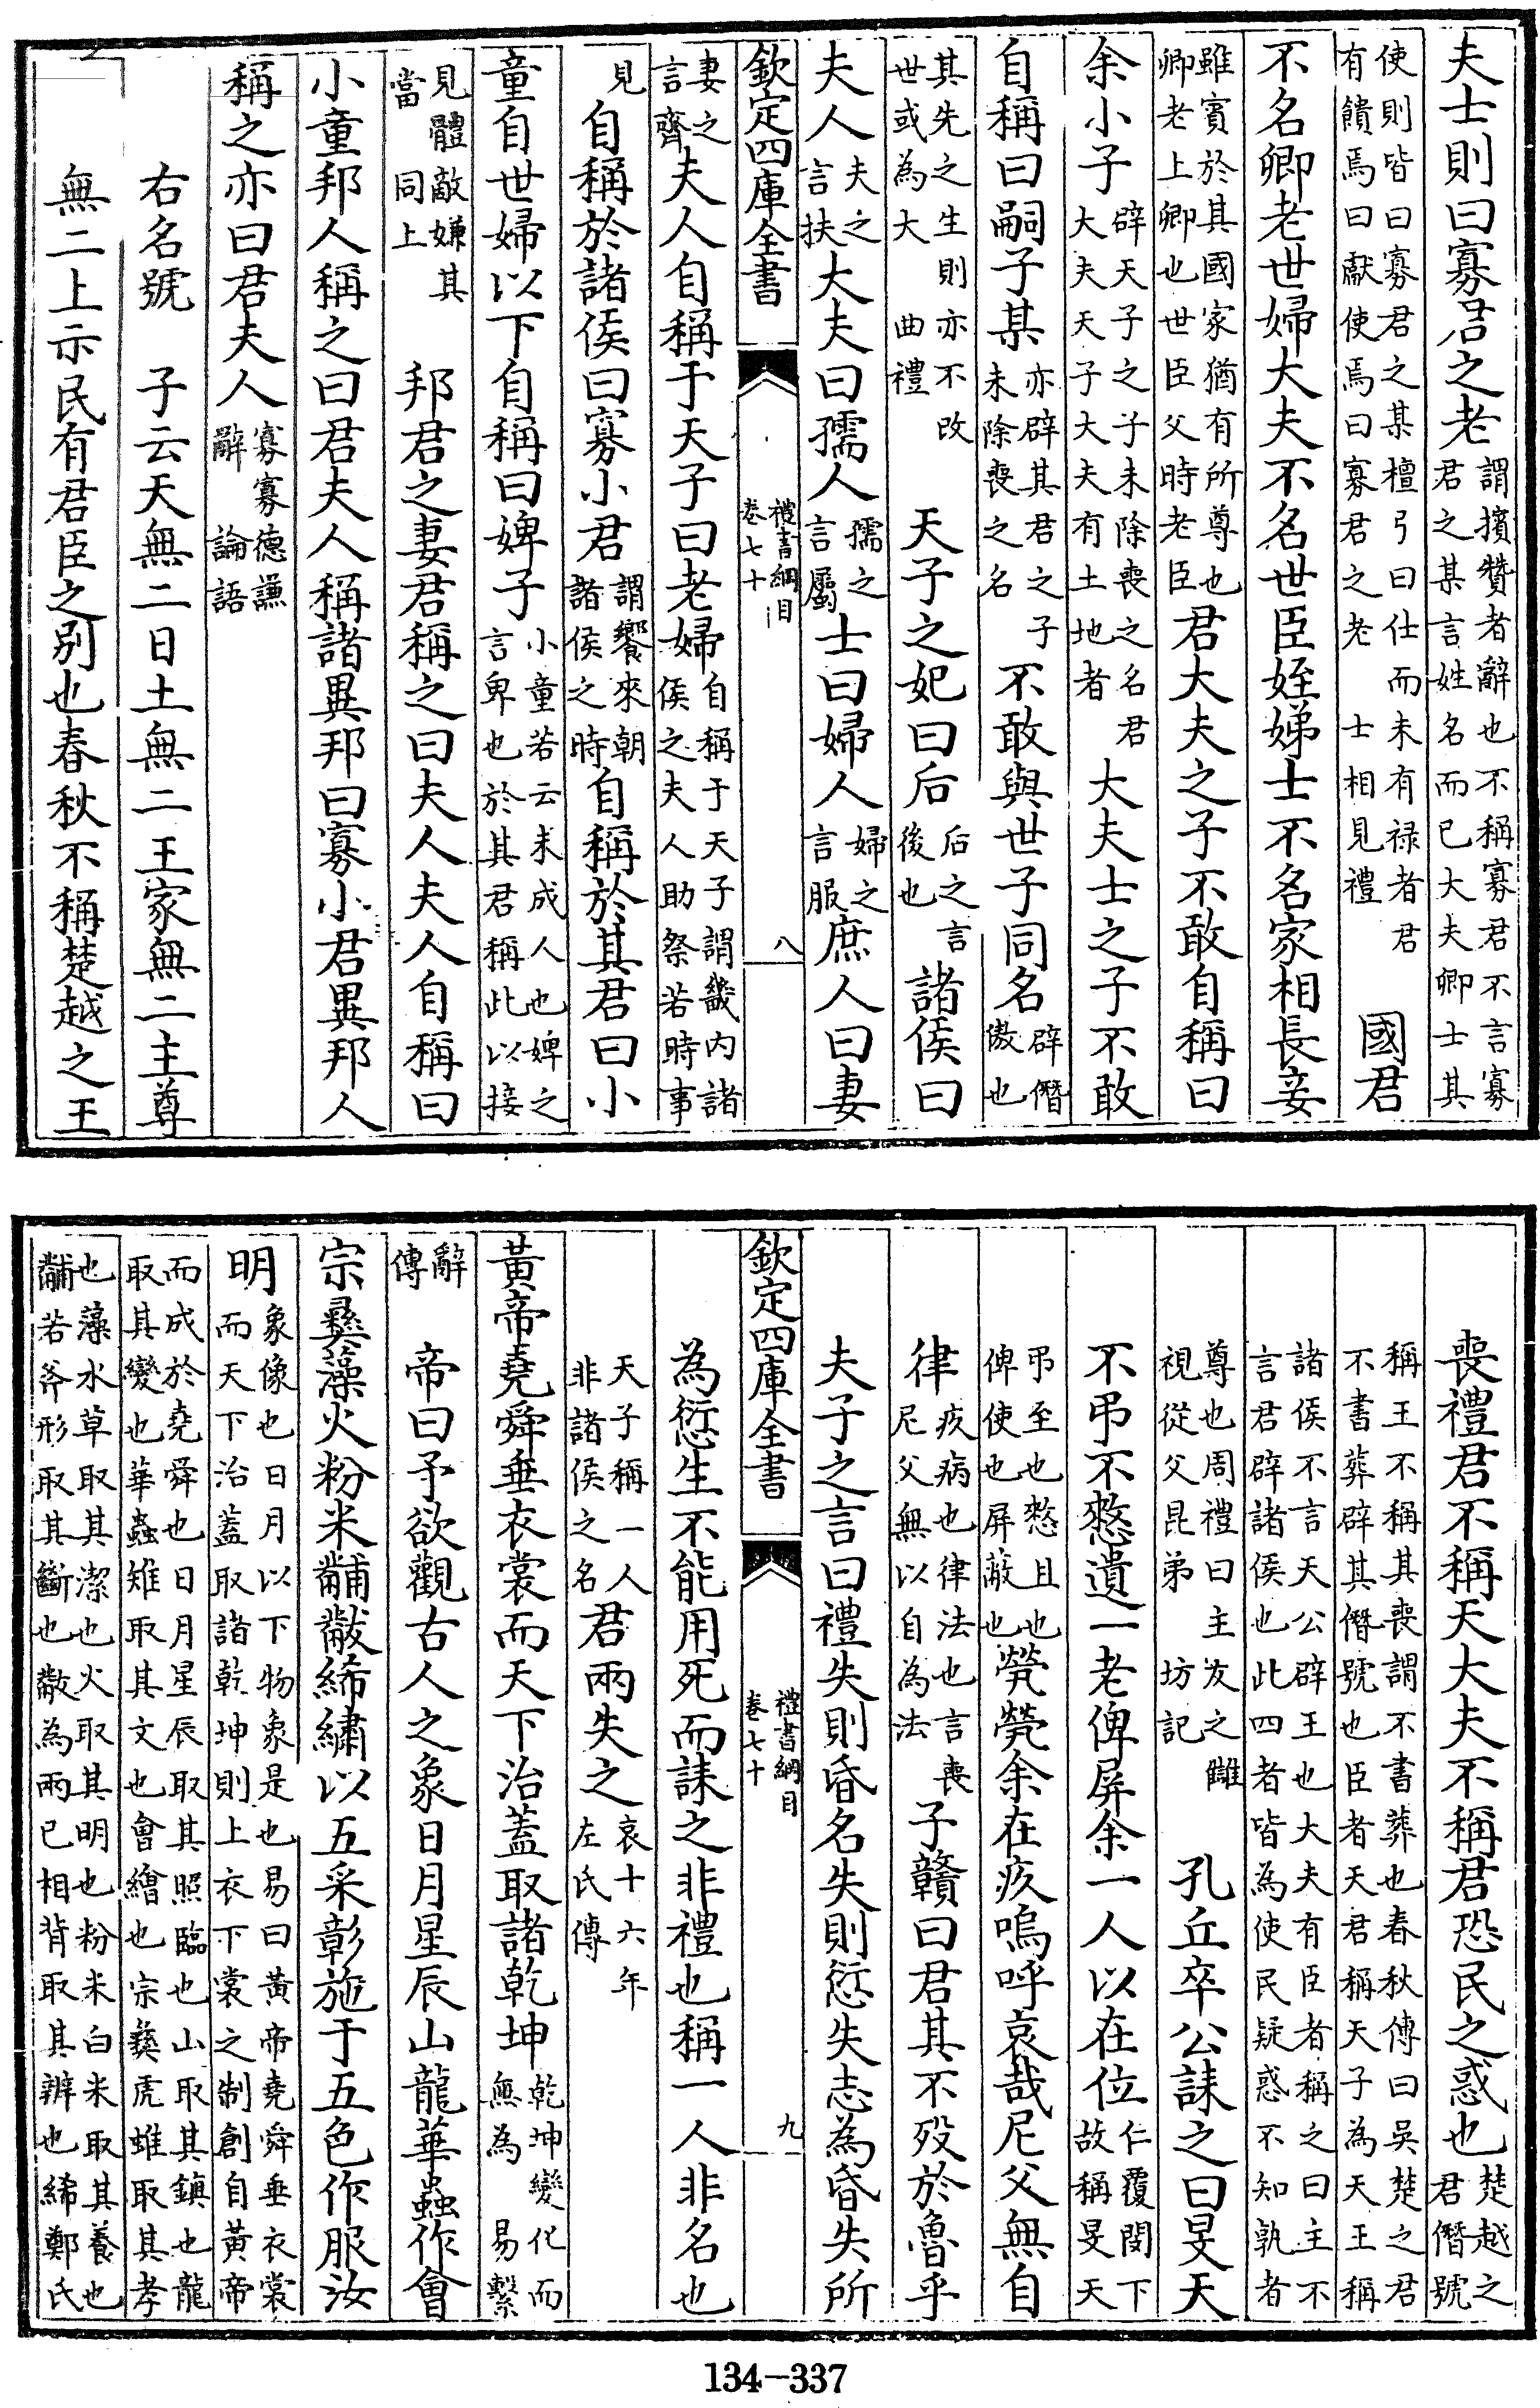 夫士則曰寡君之老謂擯贊者辭也不稱寡君不言寡君之某言姓名而已大夫卿士其
使則皆曰寡君之某檀弓曰仕而未有禄者君有饋焉曰獻使焉曰寡君之老　士相見禮　國君
不名卿老世婦大夫不名世臣姪娣士不名家相長妾
雖賓於其國家猶有所尊也卿老上卿也世臣父時老臣君大夫之子不敢自稱曰
余小子辟天子之子未除喪之名君大夫天子大夫有土地者大夫士之子不敢
自稱曰嗣子某亦辟其君之子未除喪之名不敢與世子同名辟僭傲也
其先之生則亦不改世或為大　曲禮　天子之妃曰后后之言後也諸侯曰
夫人夫之言扶大夫曰孺人孺之言屬士曰婦人婦之言服庶人曰妻
欽定四庫全書　禮書綱目卷七十　八
妻之言齊夫人自稱于天子曰老婦自稱于天子謂畿内諸侯之夫人助祭若時事
見自稱於諸侯曰寡小君謂饗來朝諸侯之時自稱於其君曰小
童自世婦以下自稱曰婢子小童若云未成人也婢之言卑也於其君稱此以接
見體敵嫌其當　同上　邦君之妻君稱之曰夫人夫人自稱曰
小童邦人稱之曰君夫人稱諸異邦曰寡小君異邦人
稱之亦曰君夫人寡寡德謙辭　論語
右名號　子云天無二日土無二王家無二主尊
無二上示民有君臣之别也春秋不稱楚越之王
喪禮君不稱天大夫不稱君恐民之惑也楚越之君僭號
稱王不稱其喪謂不書葬也春秋傳曰吳楚之君不書葬辟其僭號也臣者天君稱天子為天王稱
諸侯不言天公辟王也大夫有臣者稱之曰主不言君辟諸侯也此四者皆為使民疑惑不知孰者
尊也周禮曰主友之讎視從父昆弟　坊記　孔丘卒公誄之曰旻天
不弔不憖遺一老俾屏余一人以在位仁覆閔下故稱旻天
弔至也憖且也俾使也屏蔽也煢煢余在疚嗚呼哀哉尼父無自
律疚病也律法也言喪尼父無以自為法子贛曰君其不殁於魯乎
夫子之言曰禮失則昏名失則愆失志為昏失所
欽定四庫全書　禮書綱目卷七十　九
為愆生不能用死而誄之非禮也稱一人非名也
天子稱一人非諸侯之名君兩失之哀十六年左氏傳
黃帝堯舜垂衣裳而天下治蓋取諸乾坤乾坤變化而無為　易繫
辭傳　帝曰予欲觀古人之象日月星辰山龍華蟲作會
宗彝藻火粉米黼黻絺繡以五采彰施于五色作服汝
明象像也日月以下物象是也易曰黃帝堯舜垂衣裳而天下治蓋取諸乾坤則上衣下裳之制創自黃帝
而成於堯舜也日月星辰取其照臨也山取其鎮也龍取其變也華蟲雉取其文也會繪也宗彝虎蜼取其孝
也藻水草取其潔也火取其明也粉米白米取其養也黼若斧形取其斷也黻為兩已相背取其辨也絺鄭氏
134-337